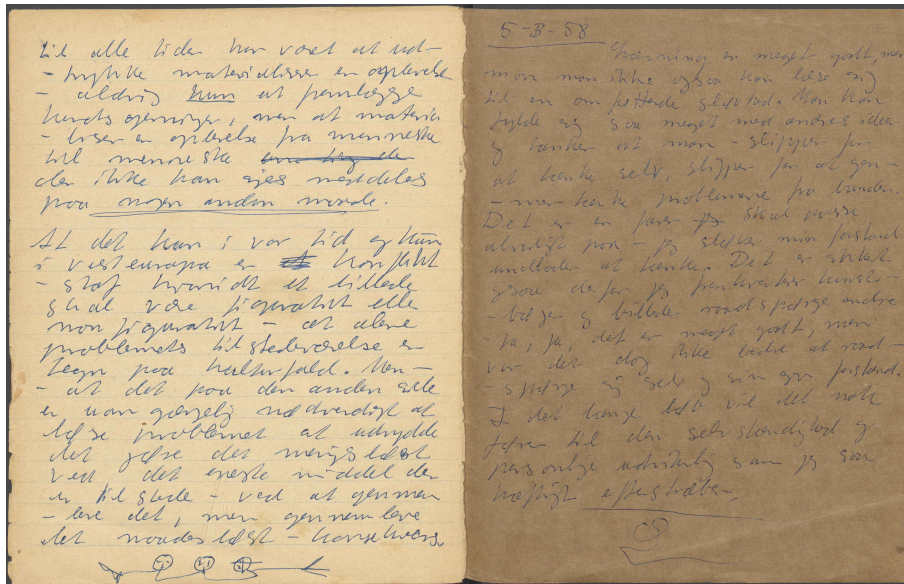 til alle tider har været at ud-
-trykke materialiserer en oplevelse
- aldrig kun at fremlægge
herods gerninger, men at materia
-liser en oplevelse fra menneske
til menneske
der ikke kan ejes meddeles
paa nogen anden maade.
At det kun i vor tid og kun
i vesteuropa er konflikt
-stof hvorvidt et billede
skal være figurativt eller
non figurativt - at alene
problemets tilstedeværelse er
tegn paa kulturfald. Men -
- at det paa den anden side
er uomgængelig nødvendigt at
løse problemet at udrydde
det gøre det meningsløst
ved det eneste middel der
er til stede - ved at gennem
-leve det, men gennemleve
det naadesløst - konsekvens.
5-3-58
Læsning er meget godt, men
mon man ikke ogsaa kan læse sig
til en omfattende sløvhed. Man kan
fylde sig saa meget med andres ideer
og tanker at man - slipper for
at tænke selv, slipper for at gen-
-nemtænke problemerne fra bunden.
Det er en fare jeg skal passe
alvorligt paa - jeg slipper min forstand
undlader at tænke. Det er sikkert
ogsaa derfor jeg kunst-
-bøger og billede raadspørge andre
- ja, ja, det er meget godt, men
var det dog ikke bedre at raad-
-spørge sig selv og sin egen forstand.
I det lange løb vil det nok
føre til den selvstændighed og
personlige udvikling som jeg saa
hæftigt efterstræber.